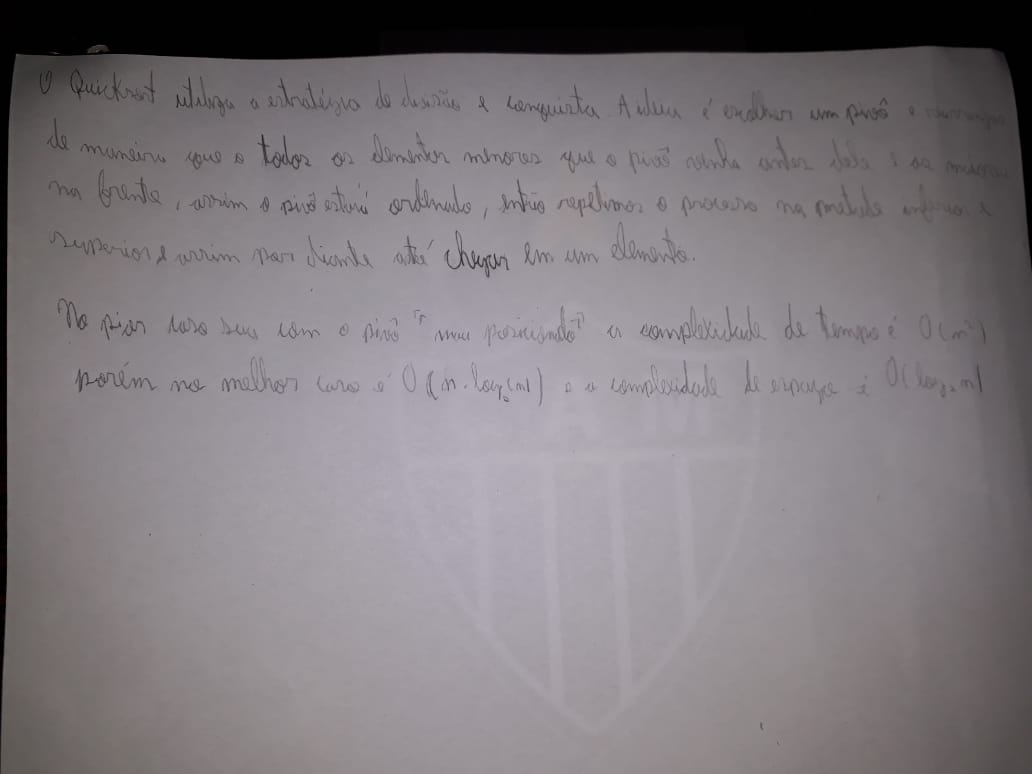 O Quicksort utiliza a estratégia de divisão e conquista. A ideia é escolher um pivô e
de maneira que o todos os elementos menores que o pivô venha antes dele e os maiores
na frente, assim o pivô estará ordenado, então repetimos o processo na metade inferior e
superior e assim por diante até chegar em um elemento.
No pior caso seus com o pivô "mau posicionado" a complexidade de tempo é O(n²)
porém no melhor caso é O(n.log₂(n)) e a complexidade de espaço é O(log₂n)
CAM